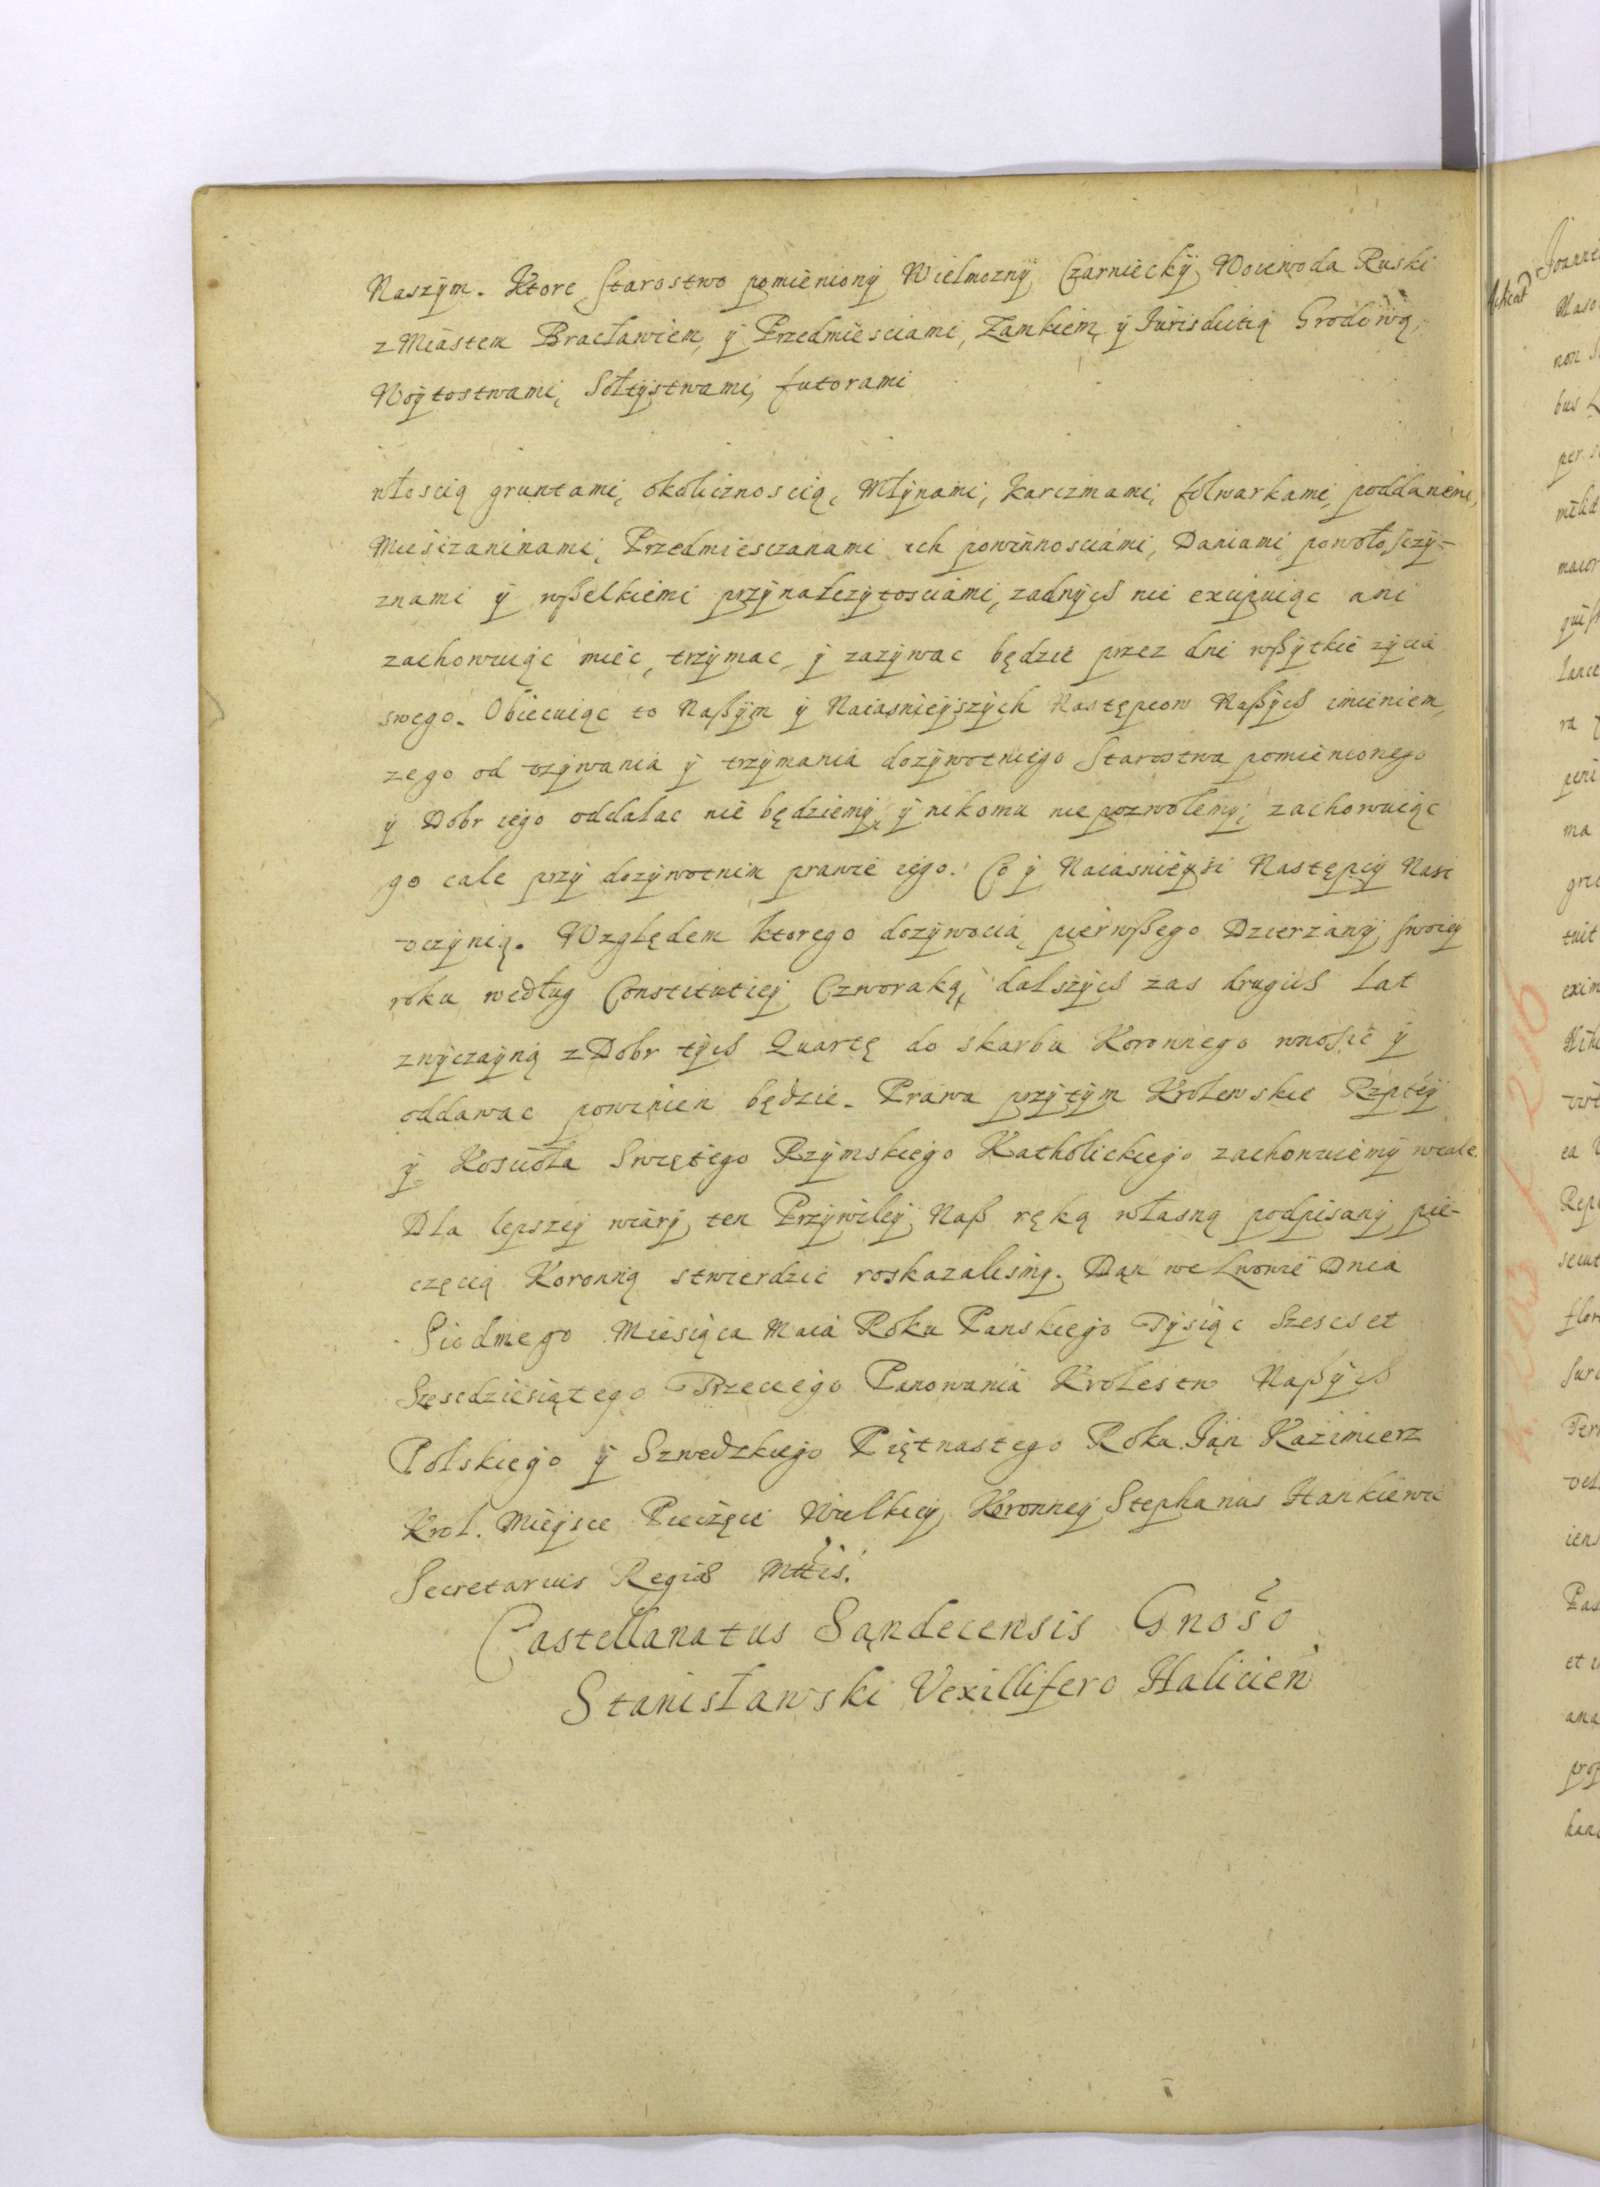 Naszým. Ktore starostwo pomienioný Wielmozný Czarnieckÿ Woiewoda Ruski
z Miastem Bracławiem, ý Przedmiesciami, Zamkiem, ý Jurisdictią Grodową,
Woýtostwami, Sołtýstwami, futorami
włoscią gruntami, okolicznoscią, Młýnami, karczmami, folwarkami, poddanemi,
Miesczaninami, Przedmiesczanami ich powinnosciami, Daniami powołosczý-
znami ý wßelkiemi przýnależýtosciami, żadných nie excipuiąc ani
zachowuiąc mieć, trzýmac, ý zażýwac będzie przez dni wßýtkie żýcia
swego. Obiecuiąc to Naßým ý Naiasnieÿszých Następcow Naßých imieniem,
ze go od vżýwania ý trzýmania dożýwotniego Starostwa pomienionego
ý Dobr iego oddalac nie będziemý, ý nikomu nie pozwolemý, zachowuiąc
go cale przý dożýwotnim prawie iego. Co ý Naiasnieýsi Następcý Nasi
vczýnią. Względem ktorego dożýwocia, pierwßego Dzierżawý swoieý
roku według Constitutieý Czworaką, dalszých zas drugich lat
zwýczaýną z Dobr tých Quartę do skarbu Koronnego wnosić ý
oddawac powinien będzie. Prawa przýtým Krolewskie Rzptéý
ý Koscioła Swiętego Rzýmskiego Katholickiego zachowuiemý wcale.
Dla lepszeý wiarý, ten Przýwileý, Naß ręką własną podpisaný pie-
częcią Koronną stwierdzic roskazalismý. Dan we Lwowie Dnia
Siodmego Miesiąca Maia Roku Panskiego Týsiąc Szescset
Szescdziesiątego Trzeciego Panowania Krolestw Naßých
Polskiego ý Szwedzkiego Piętnastego Roku. Jan Kazimierz
Krol. Mieýsce Pieczęci Wielkieý Koronneý Stephanus Hankiewic
Secretarius Regiæ Mttis.
Castellanatus Sandecensis Gnoso
Stanisławski Vexillifero Halicien